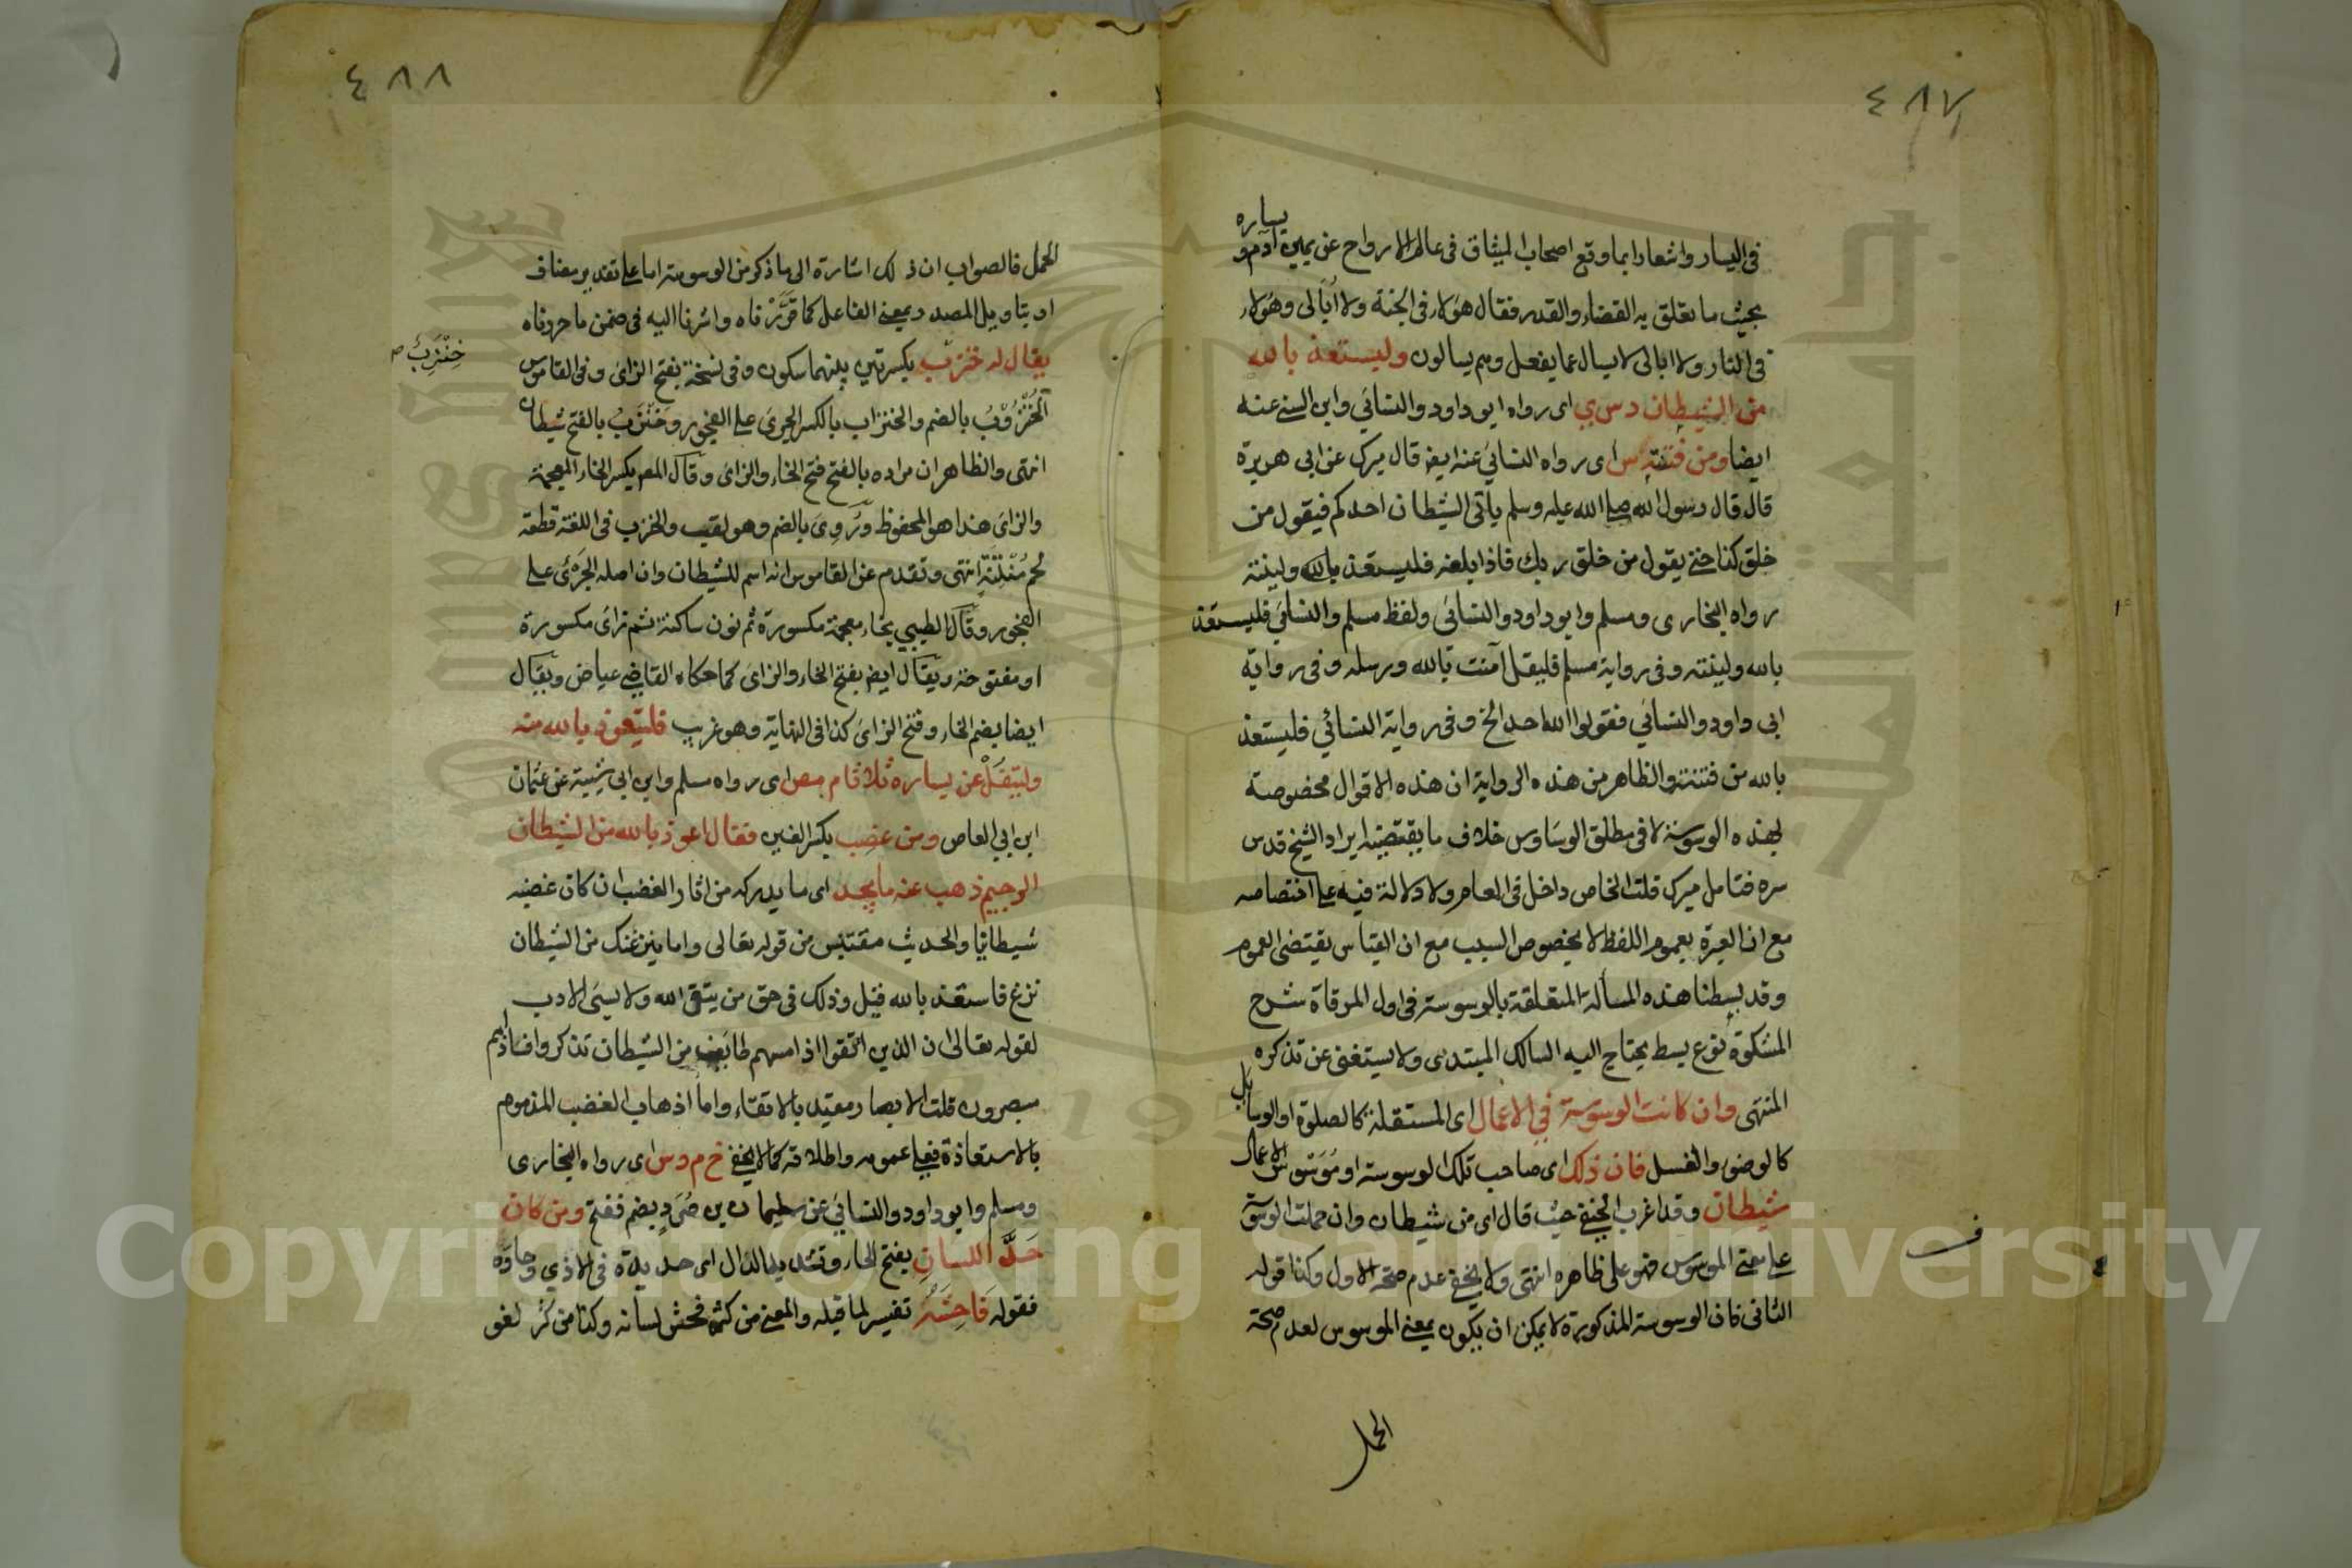 ٤٨٧
في اليسار واشعارا بما وقع اصحاب الميثاق في عالم الارواح عن يمين ادم و يساره
بحيث ما تعلق به القضاء والقدر فقال هؤلاء في الجنة ولا أبالي وهؤلاء
في النار ولا ابالي لا يسال عما يفعل وهم يسالون وليستعذ بالله
من الشيطان د س ي اي رواه ابو داود والنسائي وابن السني عنه
ايضا ومن فتنته س اي رواه النسائي عنه ايضا قال ميرك عن ابي هريرة
قال قال رسول الله صلى الله عليه وسلم يأتي الشيطان احدكم فيقول من
خلق كذا حتى يقول من خلق ربك فاذا بلغه فليستعذ بالله ولينته
رواه البخاري ومسلم وابو داود والنسائي ولفظ مسلم والنسائي فليستعذ
بالله ولينته وفي رواية مسلم فليقل آمنت بالله ورسله وفي رواية
ابي داود والنسائي فقولوا الله احد الخ وفي رواية النسائي فليستعذ
بالله من فتنته والظاهر من هذه الرواية ان هذه الاقوال مخصوصة
بهذه الوسوسة لا في مطلق الوساوس خلاف ما يقتضيه ايراد الشيخ قدس
سره فتامل ميرك قلت الخاص داخل في العام ولا دلالة فيه على اختصاصه
مع ان العبرة بعموم اللفظ لا بخصوص السبب مع ان القياس يقتضي العموم
وقد بسطنا هذه المسألة المتعلقة بالوسوسة في اول المرقاة شرح
المشكوة نوع بسط يحتاج اليه السالك المبتدي ولا يستغني عن تذكره
المنتهي وان كانت الوسوسة في الاعمال اي المستقلة كالصلوة او الوسايل
كالوضوء والغسل فان ذلك اي صاحب تلك الوسوسة او موسوس الاعمال
شيطان وقد اغرب الحنفي حيث قال اي من شيطان وان حملت الوسوسة
على معنى الموسوس فهو على ظاهره انتهى ولا يخفى عدم صحة الاول وكذا قوله
الثاني فان الوسوسة المذكورة لا يمكن ان يكون بمعنى الموسوس لعدم صحة
الحمل
ف
٤٨٨
الحمل فالصواب ان ذلك اشارة الى ما ذكر من الوسوسة اما على تقدير مضاف
او بتاويل المصدر بمعنى الفاعل كما قررناه واشرنا اليه في ضمن ما حررناه
يقال له خنزب بكسرتين بينهما سكون وفي نسخة بفتح الزاي وفي القاموس
خِنْزَبُ ص
الخنزوب بالضم والخنزاب بالكسر الجري على الفجور وخنزب بالفتح شيطان
انتهى والظاهر ان مراده بالفتح فتح الخاء والزاي وقال المص بكسر الخاء المعجمة
والزاي هذا هو المحفوظ وروي بالضم وهو لقب والخنزب في اللغة قطعة
لحم منتنة انتهى وتقدم عن القاموس انه اسم للشيطان وان اصله الجري على
الفجور وقال الطيبي بخاء معجمة مكسورة ثم نون ساكنة ثم زاي مكسورة
او مفتوحة ويقال ايضا بفتح الخاء والزاي كما حكاه القاضي عياض ويقال
ايضا بضم الخاء وفتح الزاي كذا في النهاية وهو غريب فليتعوذ بالله منه
وليتفل عن يساره ثلاثا م مص اي رواه مسلم وابن ابي شيبة عن عثمان
ابن ابي العاص ومن غضب بكسر الضاد فقال اعوذ بالله من الشيطان
الرجيم ذهب عنه ما يجد اي ما يدركه من اثار الغضب ان كان غضبه
شيطانيا والحديث مقتبس من قوله تعالى واما ينزغنك من الشيطان
نزغ فاستعذ بالله قيل وذلك في حق من يتق الله ولا يسئ الادب
لقوله تعالى ان الذين اتقوا اذا مسهم طائف من الشيطان تذكروا فاذا هم
مبصرون قلت الابصار مقيد بالاتقاء واما اذهاب الغضب المذموم
بالاستعاذة فعلى عمومه واطلاقه كما لا يخفى خ م د س اي رواه البخاري
ومسلم وابو داود والنسائي عن سليمان بن صرد بضم ففتح ومن كان
حد اللسان بفتح الحاء وتشديد الدال اي حديده في الاذي وحاوه
فقوله فاحشه تفسير لما قبله والمعنى من كثر فحش لسانه وكذا من كثر لغو